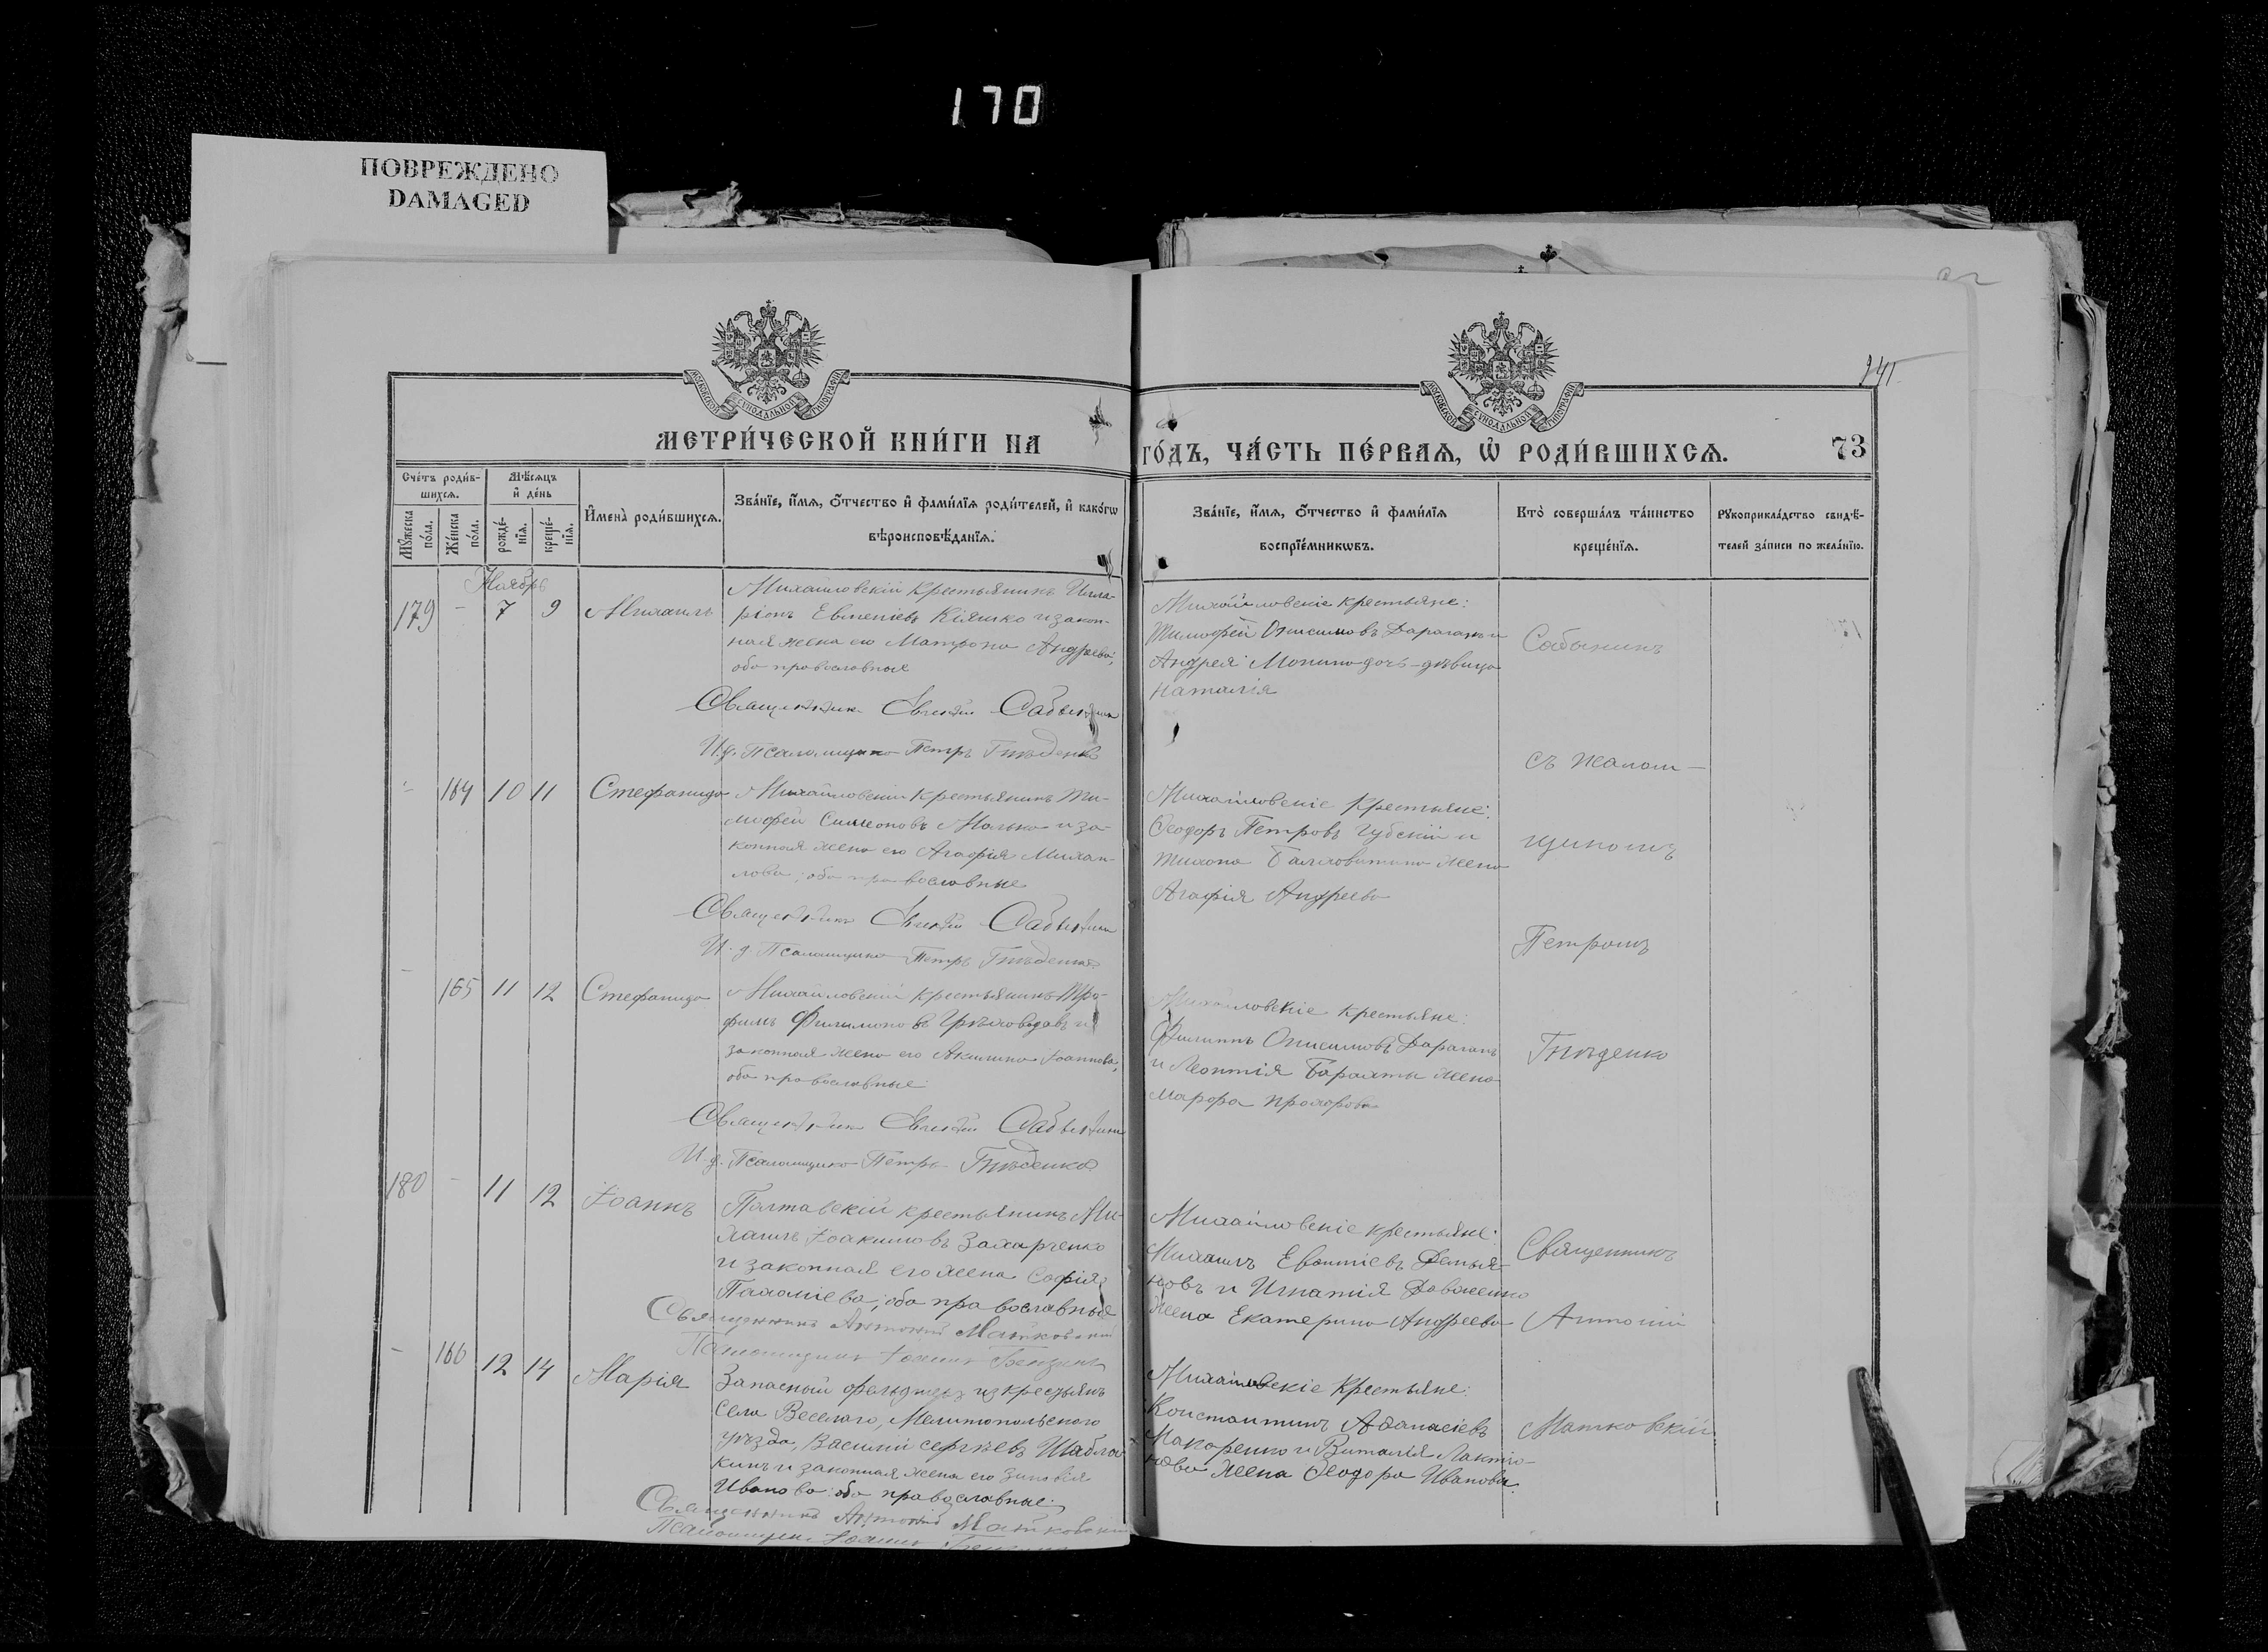 170
ПОВРЕЖДЕНО
DAMAGED
МОСКОВСКОЙ СѴНОДАЛЬНОЙ ТИПОГРАФІИ
МОСКОВСКОЙ СѴНОДАЛЬНОЙ ТИПОГРАФІИ
МЕТРИ́ЧЕСКОЙ КНИ́ГИ НА
ГО́ДЪ, ЧА́СТЬ ПЕ́РВАѦ, Ѡ҆ РОДИ́ВШИХСѦ.
73
Сче́тъ роди́в-
шихсѧ.
Мꙋ́жеска по́ла.
Же́нска по́ла.
Мѣ́сѧцъ
и҆ де́нь
рожде́-
нїѧ.
креще́-
нїѧ.
И҆мена̀ роди́вшихсѧ.
Зва́нїе, и҆́мѧ, ѻ҆́тчество и҆ фами́лїѧ роди́телей, и҆ како́гѡ
вѣроисповѣ́данїѧ.
Зва́нїе, и҆́мѧ, ѻ҆́тчество и҆ фами́лїѧ
воспрїе́мникѡвъ.
Кто̀ соверша́лъ та́инство
креще́нїѧ.
Рꙋкоприкла́дство свидѣ́-
телей за́писи по жела́нїю.
Ноябрь
179 - 7 9 Михаилъ
Михайловскій крестьянинъ Илла-
ріонъ Евменіевъ Кіяшко и закон-
ная жена его Матрона Андреева,
оба православные
Священникъ Сабынинъ
И. д. Псаломщика Петръ Гнѣденко
Михайловскіе крестьяне:
Тимофей Онисимовъ Дараганъ и
Андрея дочь-дѣвица
Наталія
Сабынинъ
съ псалом-
164 10 11 Стефанида
Михайловскій крестьянинъ Ти-
мофей Симеоновъ Малько и за-
конная жена его Агафія Михаи-
лова, оба православные
Священникъ Сабынинъ
И. д. Псаломщика Петръ Гнѣденко
Михайловскіе крестьяне:
Ѳеодоръ Петровъ Губскій и
Тихона жена
Агафія Андреева
щикомъ
Петромъ
165 11 12 Стефанида
Михайловскій крестьянинъ Тро-
фимъ Филимоновъ и
законная жена его Акилина Іоаннова,
оба православные
Священникъ Сабынинъ
И. д. Псаломщика Петръ Гнѣденко
Михайловскіе крестьяне:
Филиппъ Онисимовъ Дараганъ
и Леонтія жена
Марфа Прохорова
Гнѣденко
180 - 11 12 Іоаннъ
Полтавскій крестьянинъ Ми-
хаилъ Іоакимовъ Захарченко
и законная его жена Софія
оба православные
Священникъ Антоній Матковскій
Псаломщикъ Іоаннъ
Михайловскіе крестьяне:
Михаилъ Демья-
новъ и Игнатія
жена Екатерина Андреева
Священникъ
Антоній
- 166 12 14 Марія
Запасный фельдшеръ изъ крестьянъ
села Веселаго, Мелитопольскаго
уѣзда, Василій Сергѣевъ Шабло-
кинъ и законная жена его Зиновія
Иванова, оба православные
Священникъ Антоній Матковскій
Псаломщикъ Іоаннъ
Михайловскіе крестьяне:
Константинъ Аѳанасіевъ
Макаренко и Виталія Лактіо-
нова жена Ѳеодора Иванова.
Матковскій